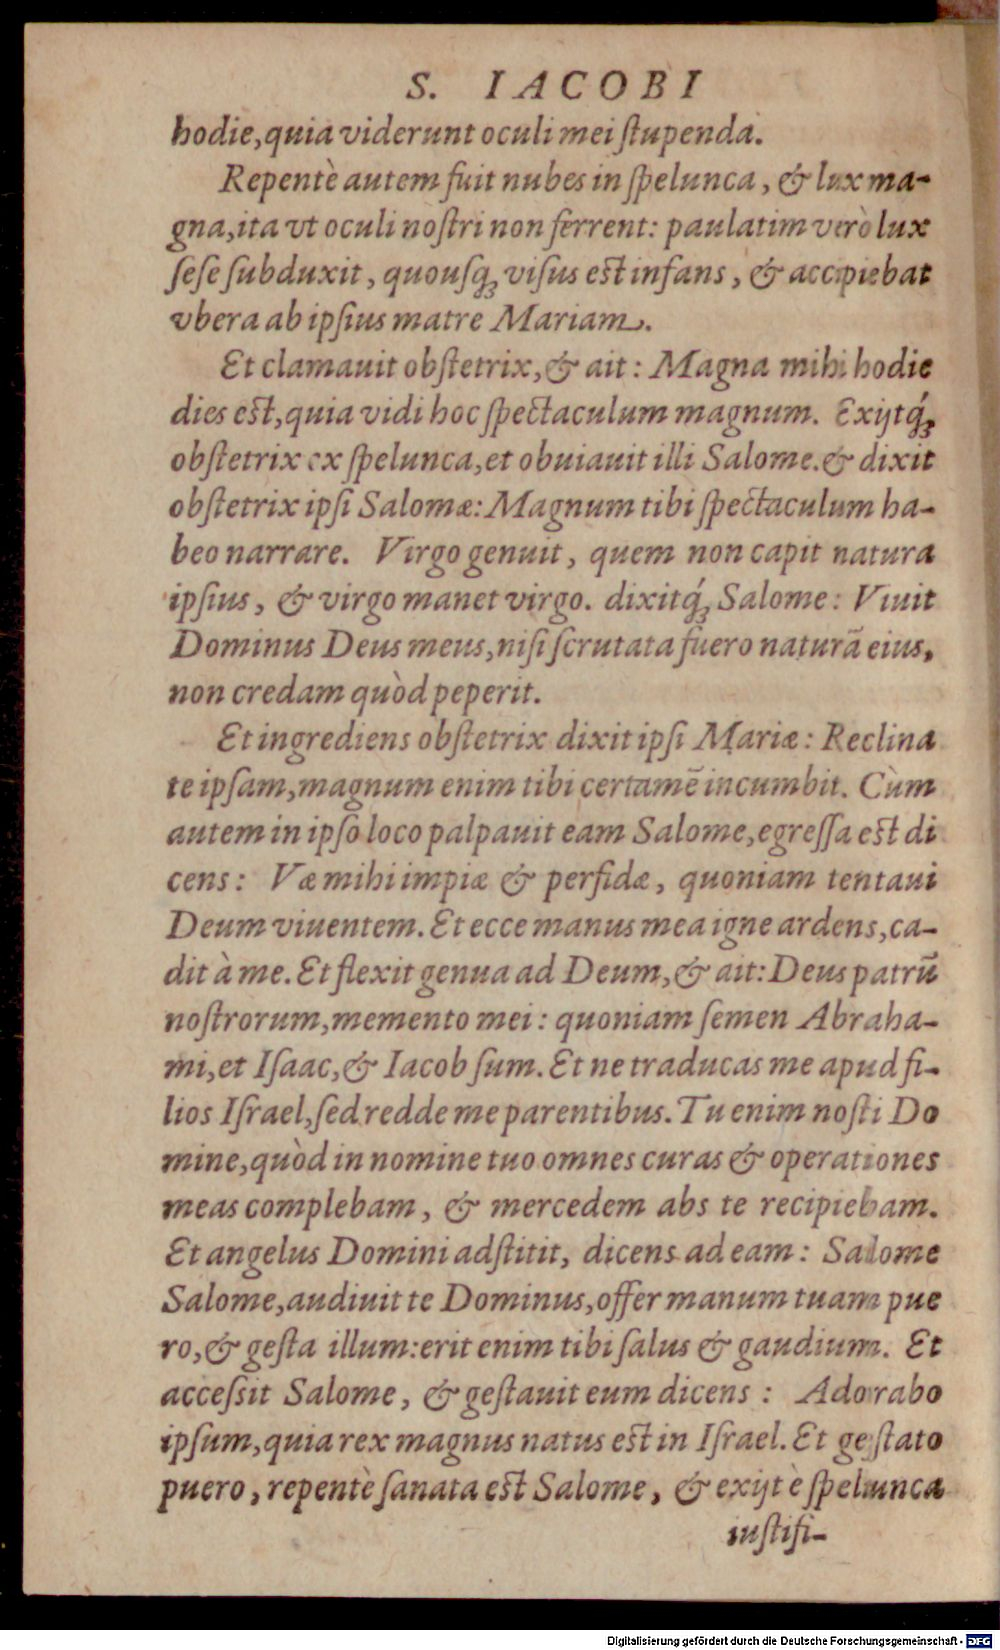 S. IACOBI
hodie, quia viderunt oculi mei ſtupenda.
Repentè autem fuit nubes in ſpelunca, & lux ma-
gna, ita vt oculi noſtri non ferrent: paulatim verò lux
ſeſe ſubduxit, quouſq; viſus eſt infans, & accipiebat
vbera ab ipſius matre Mariam.
Et clamauit obſtetrix, & ait: Magna mihi hodie
dies eſt, quia vidi hoc ſpectaculum magnum. Exijtq́;
obſtetrix ex ſpelunca, et obuiauit illi Salome. & dixit
obſtetrix ipſi Salomæ: Magnum tibi ſpectaculum ha-
beo narrare. Virgo genuit, quem non capit natura
ipſius, & virgo manet virgo. dixitq́; Salome: Viuit
Dominus Deus meus, niſi ſcrutata fuero naturā eius,
non credam quòd peperit.
Et ingrediens obſtetrix dixit ipſi Mariæ: Reclina
te ipſam, magnum enim tibi certamē incumbit. Cùm
autem in ipſo loco palpauit eam Salome, egreſſa eſt di
cens: Væ mihi impiæ & perfidæ, quoniam tentaui
Deum viuentem. Et ecce manus mea igne ardens, ca-
dit à me. Et flexit genua ad Deum, & ait: Deus patrū
noſtrorum, memento mei: quoniam ſemen Abraha-
mi, et Iſaac, & Iacob ſum. Et ne traducas me apud fi-
lios Iſrael, ſed redde me parentibus. Tu enim noſti Do
mine, quòd in nomine tuo omnes curas & operationes
meas complebam, & mercedem abs te recipiebam.
Et angelus Domini adſtitit, dicens ad eam: Salome
Salome, audiuit te Dominus, offer manum tuam pue
ro, & geſta illum: erit enim tibi ſalus & gaudium. Et
acceſsit Salome, & geſtauit eum dicens: Adorabo
ipſum, quia rex magnus natus eſt in Iſrael. Et geſtato
puero, repentè ſanata eſt Salome, & exijt è ſpelunca
iuſtifi-
Digitalisierung gefördert durch die Deutsche Forschungsgemeinschaft - DFG